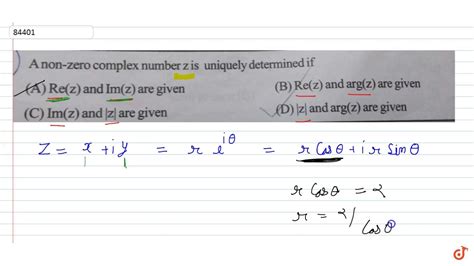 84401
A non-zero complex number z is uniquely determined if
(A) Re(z) and Im(z) are given
(B) Re(z) and arg(z) are given
(C) Im(z) and |z| are given
(D) |z| and arg(z) are given
z = x + iy = r e^{iθ} = r Cosθ + i r Sinθ
r Cosθ = 2
r = 2/Cosθ
doubtnut